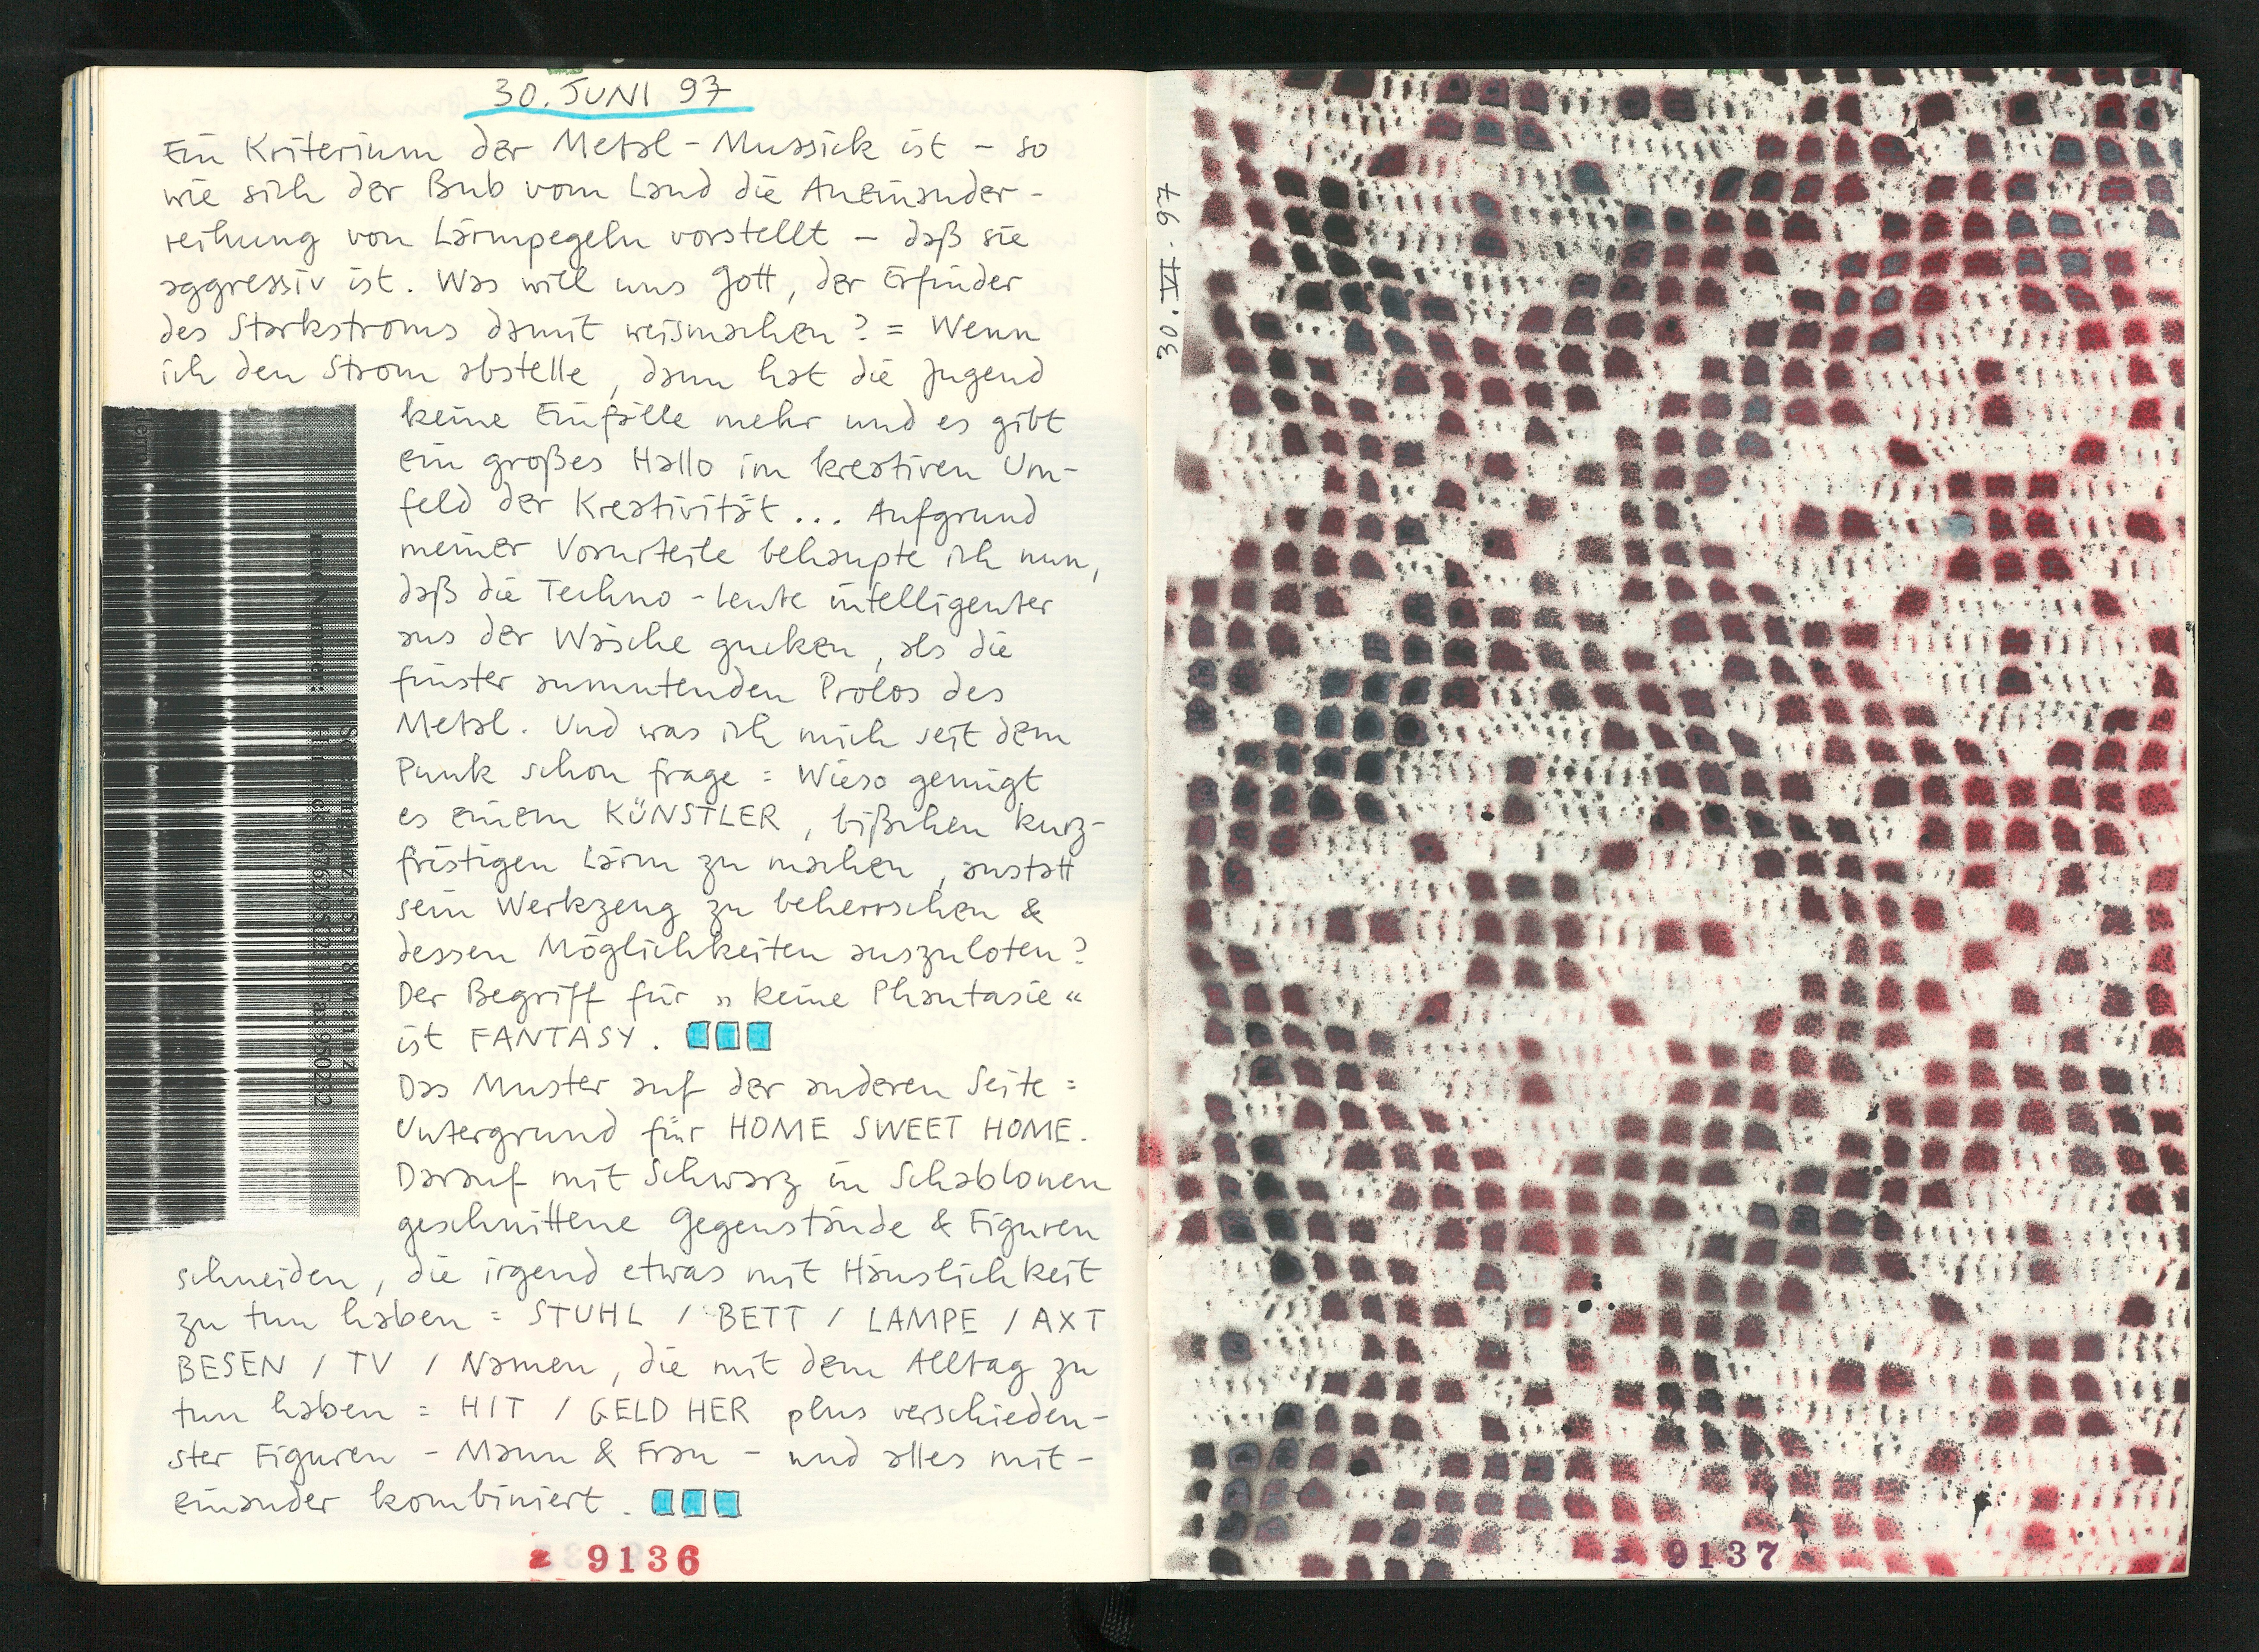 30. JUNI 97
Ein Kriterium der Metal-Mussick ist - so
wie sich der Bub vom Land die Aneinander-
reihung von Lärmpegeln vorstellt - daß sie
aggressiv ist. Was will uns Gott, der Erfinder
des Starkstroms damit weismachen? = Wenn
ich den Strom abstelle, dann hat die Jugend
keine Einfälle mehr und es gibt
ein großes Hallo im kreativen Um-
feld der Kreativität... Aufgrund
meiner Vorurteile behaupte ich nun,
daß die Techno-Leute intelligenter
aus der Wäsche gucken, als die
finster anmutenden Prolos des
Metal. Und was ich mich seit dem
Punk schon frage = Wieso genügt
es einem KÜNSTLER, bißchen kurz-
fristigen Lärm zu machen, anstatt
sein Werkzeug zu beherrschen &
dessen Möglichkeiten auszuloten?
Der Begriff für „keine Phantasie“
ist FANTASY.
Das Muster auf der anderen Seite =
Untergrund für HOME SWEET HOME.
Darauf mit Schwarz in Schablonen
geschnittene Gegenstände & Figuren
schneiden, die irgend etwas mit Häuslichkeit
zu tun haben = STUHL / BETT / LAMPE / AXT
BESEN / TV / Namen, die mit dem Alltag zu
tun haben = HIT / GELD HER plus verschieden-
ster Figuren - Mann & Frau - und alles mit-
einander kombiniert.
9136
30. VI. 97
9137